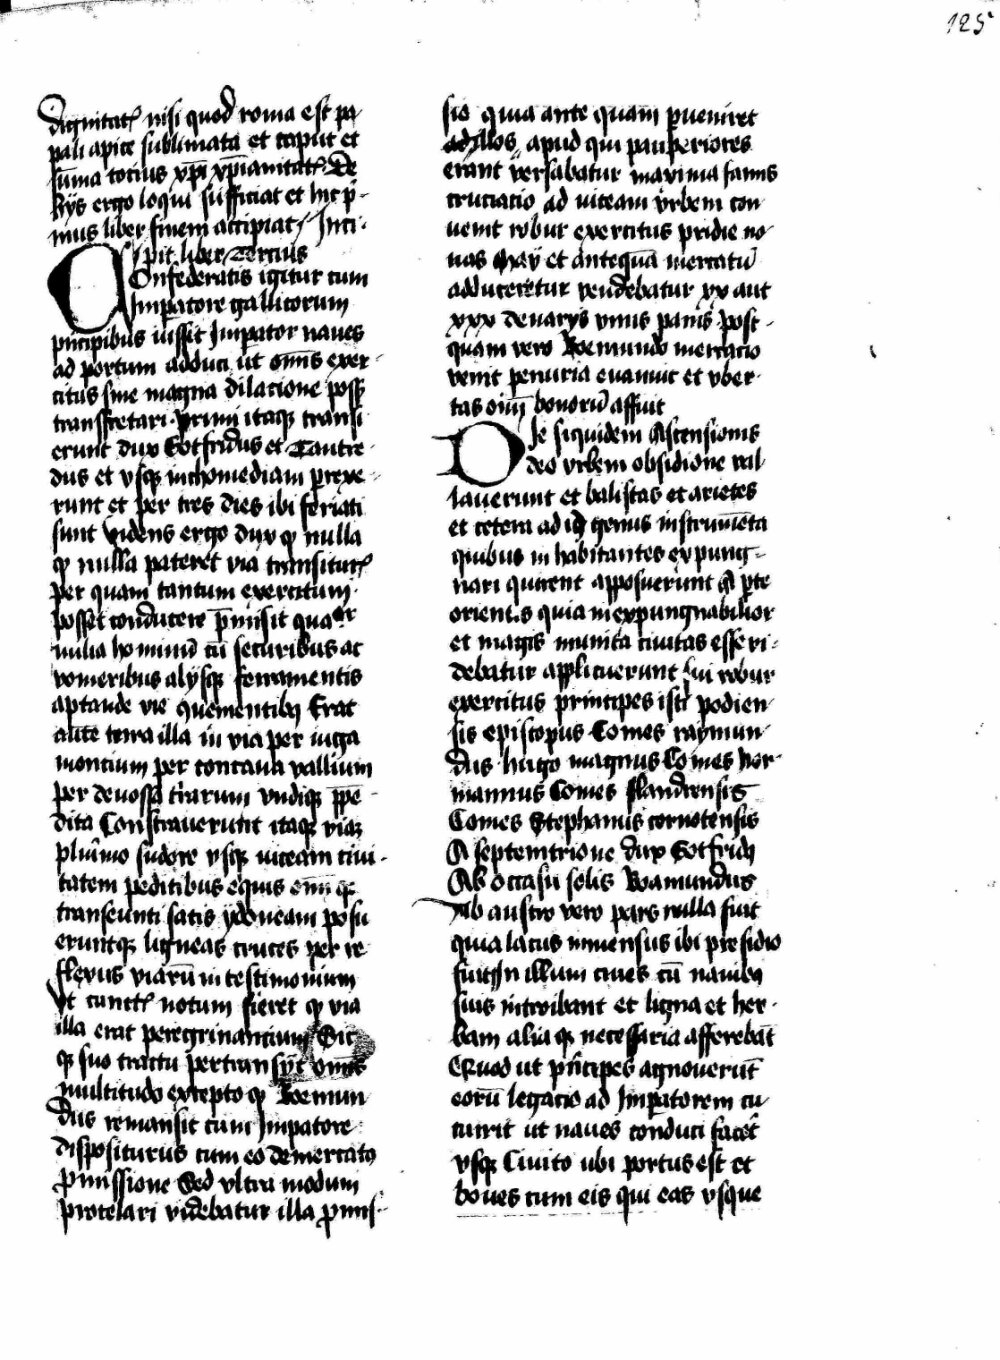 125
dignitat(is) nisi quod roma est pa
pali apice sublimata et caput et
suma totius xpi xpianitat(is). De
hys ergo loqui sufficiat et hic p̄
mus liber finem accipiat / Inci-
pit liber Tercius
Confederatis igitur cum
Impatore gallicorum
pncipibus iussit Impator naues
ad portum adduci ut om̄is exer-
citus sine magna dilacione possꝫ
transfretari. Primi itaqꝫ transi
erunt dux Gotfridus et Tancre-
dus et vsqꝫ inchomediam prexe-
runt et per tres dies ibi feriati
sunt Videns ergo dux ꝙ nulla
ꝙ nulla pateret via transitur(is)
per quam tantum exercitum
posset conducere p̄misit quatuor
milia hominū cū securibus ac
vomeribus alysqꝫ ferramentis
aptande vie quementibꝫ Erat
autē terra illa in via per iuga
montium per concaua vallium
per deuossa tr̄arum vndiqꝫ p̄pe-
dita Construerunt itaqꝫ viaꝫ
plurimo sudore vsqꝫ niceam ciui-
tatem peditibus equis om̄i qꝫ
transeunti satis ydoneam posu
eruntqꝫ ligneas cruces per re
flexus viarū in testimonium
Vt cunct(is) notum fieret ꝙ via
illa erat peregrinantium Sic
qꝫ suo tractu pertransyt om̄is
multitudo excepto ꝙ Boemun
dus remansit cum Impatore
dispositurus cum eo de mercato
p̄missione Sed vltra modum
protelari videbatur illa p̄mis-
sio quia ante quam pueniret
ad illos apud qui pauperiores
erant versabatur maxima famis
cruciatio ad niceam vrbem con
uenit robur exercitus pridie no-
nas May et antequā mercatū
adduceretur vendebatur xx aut
xxx denarys vnus panis post-
quam vero Boemundo mercatio
venit penuria euanuit et vber-
tas oim̄ bonorū affuit
Die siquidem Ascensionis
deo vrbem obsidione val
lauerunt et balistas et arietes
et cetera ad id genus instrumēta
quibus inhabitantes expung-
nari quirent apposuerunt A pte
orientis quia inexpungnabilior
et magis munita ciuitas esse vi-
debatur applicuerunt sui robur
exercitus principes isti podien-
sis episcopus Comes raymun-
dus hugo magnus Comes Nor-
mannus Comes flandrensis
Comes Stephanus cornotensis
A septemtrione dux Gotfridꝫ
Ab occasu solis Boamundus
Ab austro vero pars nulla fuit
quia lacus inmensus ibi presidio
fuit In illum ciues cū nauibꝫ
suis introibant et ligna et her-
bam aliaqꝫ necessaria afferebāt
Quod ut pn̄cipes agnouerūt
eorū legacio ad Impatorem cu
curit ut naues conduci facēt
vsqꝫ Ciuito ubi portus est et
boues cum eis qui eas vsque